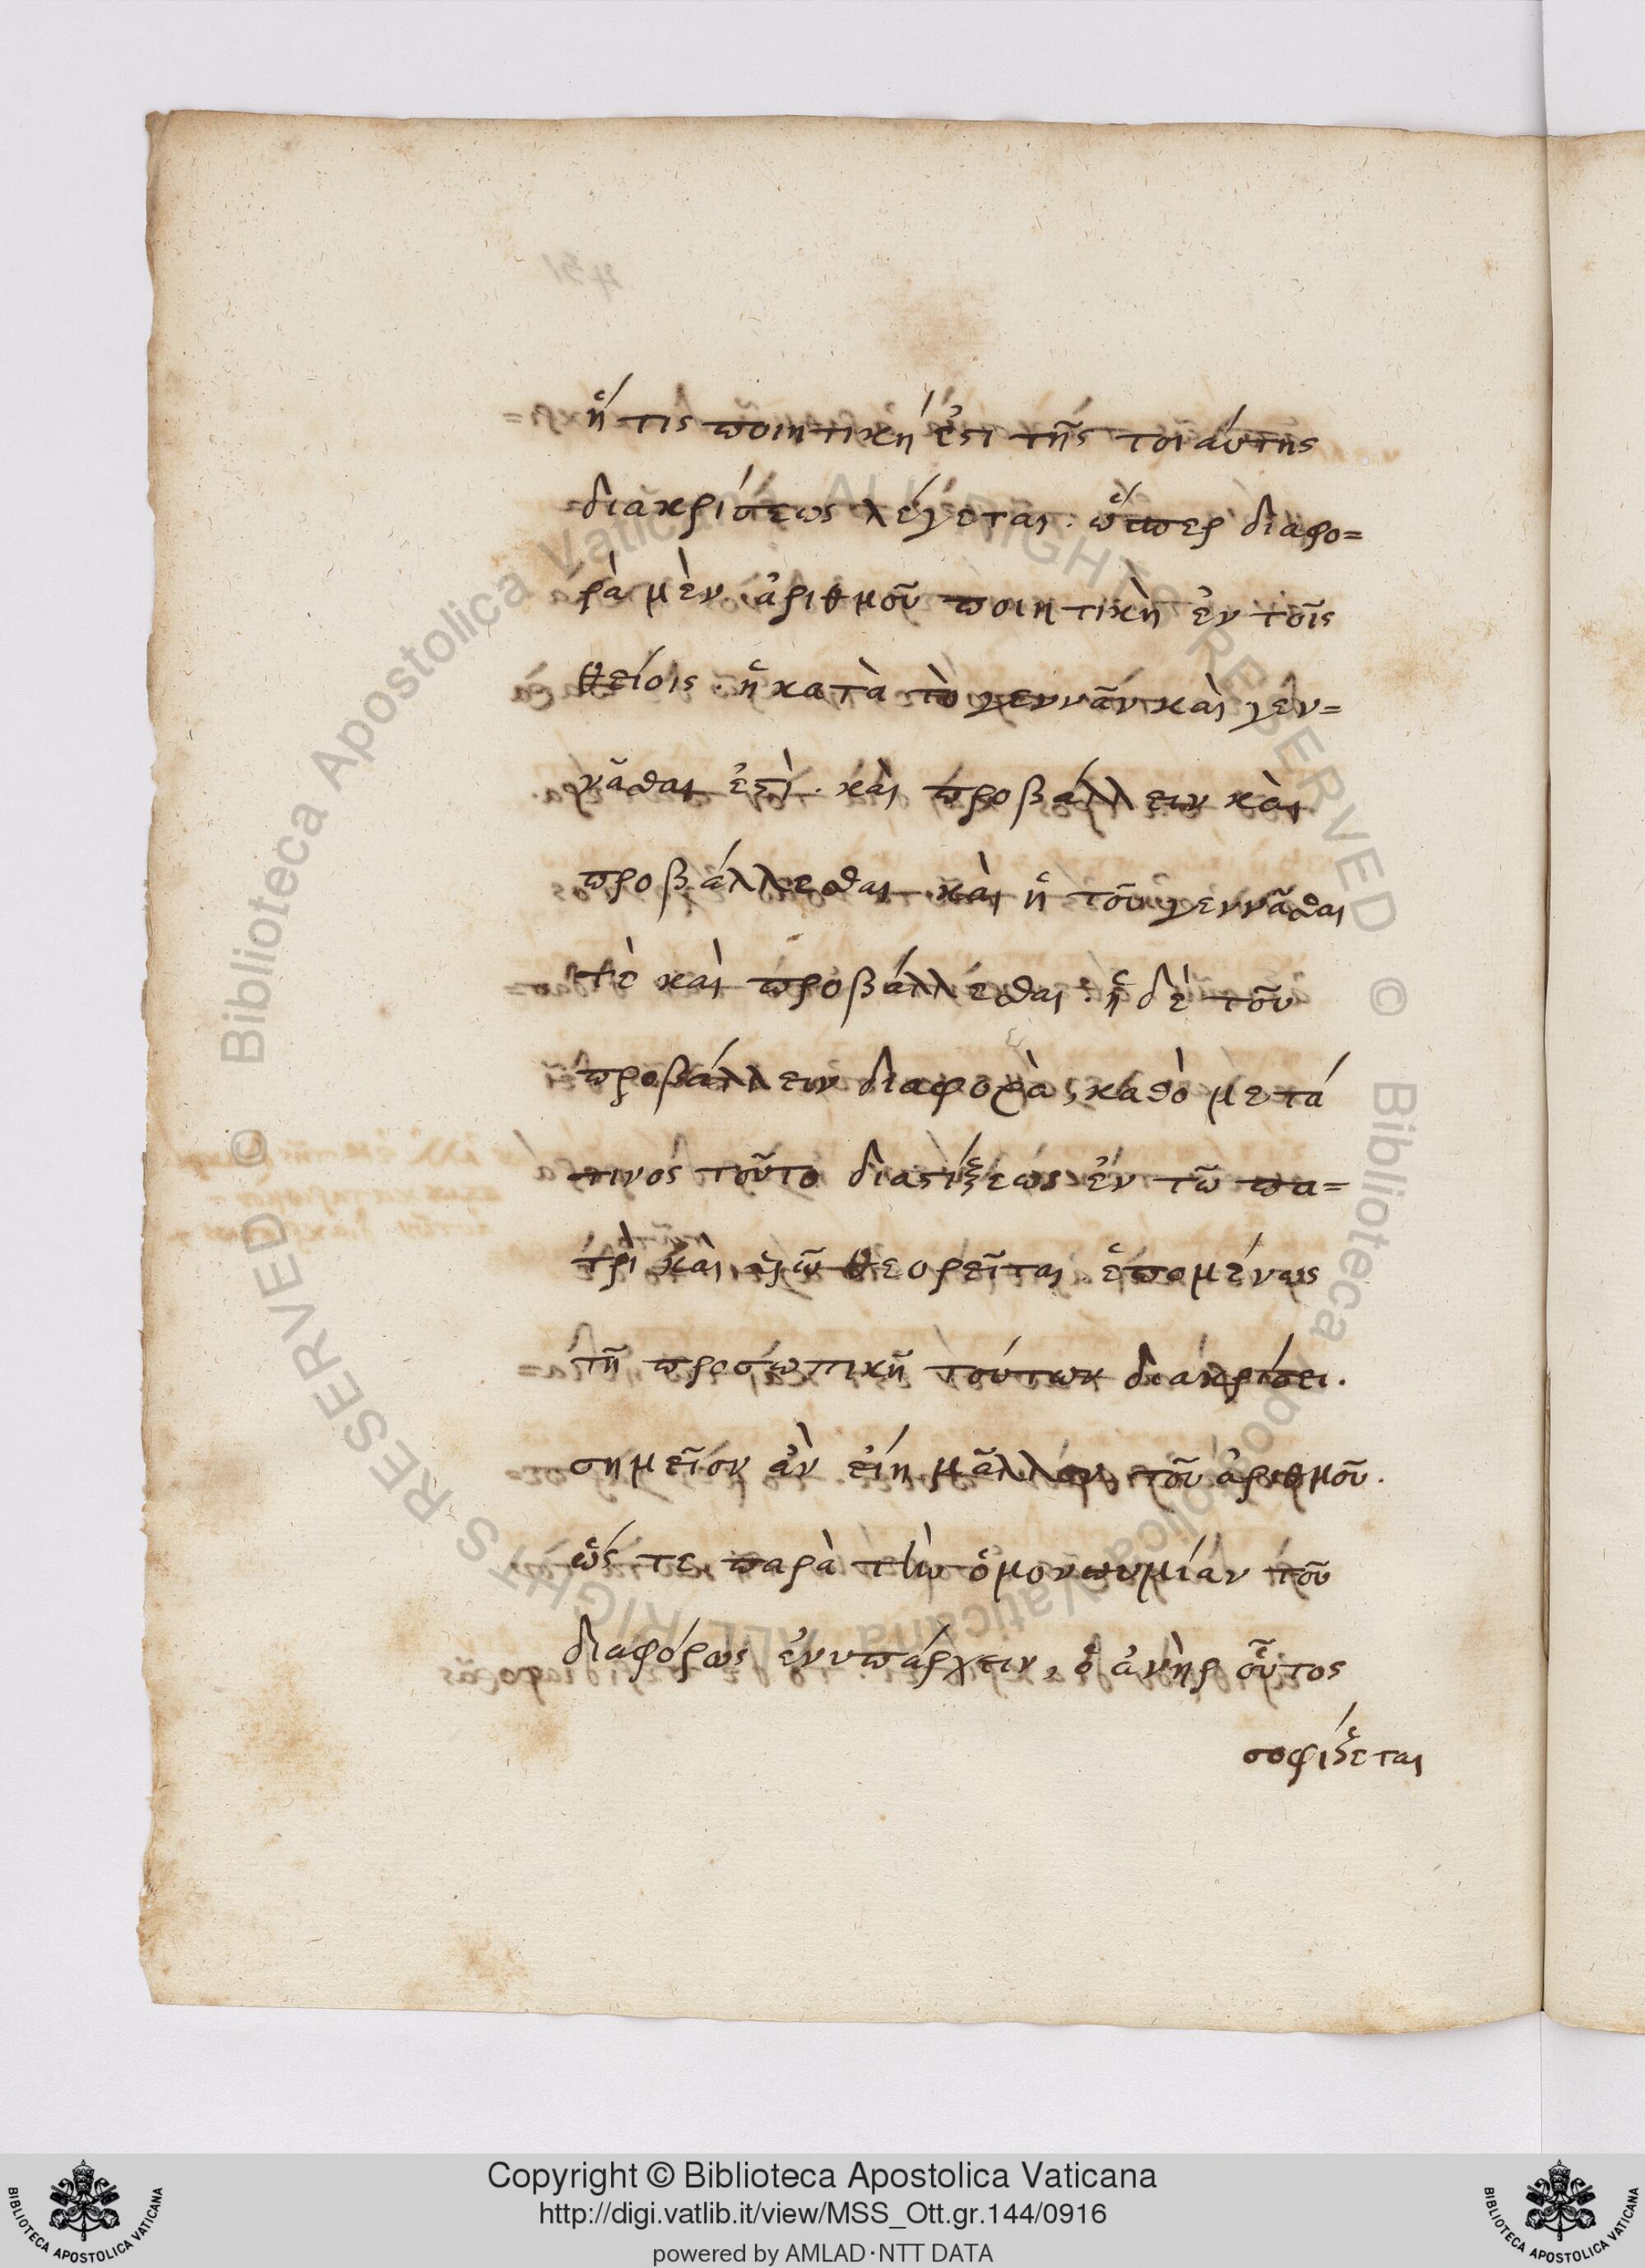 ἥ τις ποιητικὴ ἐστι τῆς τοιαύτης
διακρίσεως λέγεται. ὥσπερ διαφο=
ρὰ μὲν ἀριθμοῦ ποιητικὴ ἐν τοῖς
θείοις. ἡ κατὰ τὸ γεννᾶν καὶ γεν=
νᾶσθαι ἐστὶ. καὶ προβάλλειν καὶ
προβάλλεσθαι καὶ ἡ τοῦ γεννᾶσθαι
τὲ καὶ προβάλλεσθαι. ἡ δὲ τοῦ
προβάλλειν διαφορὰ, καθὸ μετά
τινος τοῦτο διαστίξεως ἐν τῶ πα=
τρὶ καὶ υἱῶ θεορεῖται ἑπομένως
τῆ προσωπικῆ τούτων διακρίσει.
σημεῖον ἀν εἴη μᾶλλον τοῦ ἀριθμοῦ.
ὥς τε παρὰ τὴν ὁμονυμίαν τοῦ
διαφόρως ἐνυπάρχειν, ὁ ἀνὴρ οὗτος
σοφίζεται
Copyright © Biblioteca Apostolica Vaticana
http://digi.vatlib.it/view/MSS_Ott.gr.144/0916
powered by AMLAD·NTT DATA
BIBLIOTECA APOSTOLICA VATICANA
BIBLIOTECA APOSTOLICA VATICANA
© Biblioteca Apostolica Vaticana ALL RIGHTS RESERVED
© Biblioteca Apostolica Vaticana ALL RIGHTS RESERVED